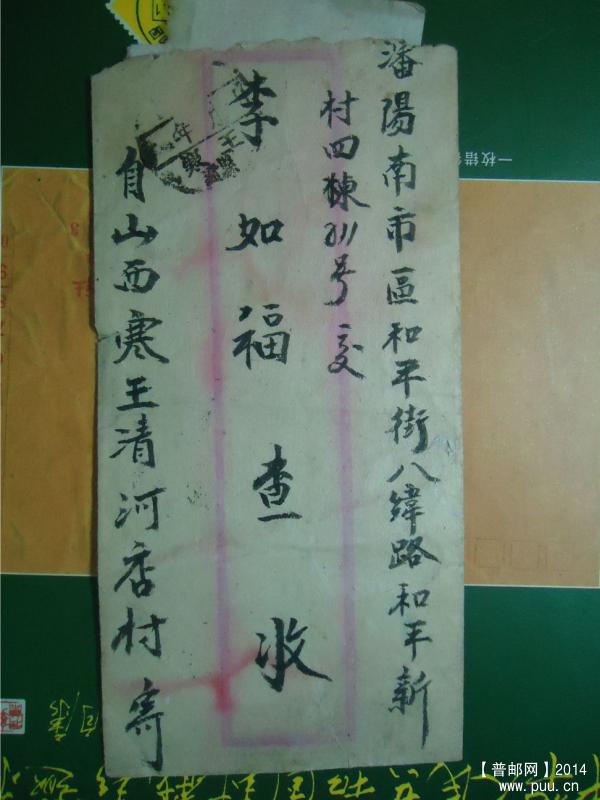 瀋陽南市區和平街八緯路和平新
村四棟311号 交
李如福查收
自山西寒王清河店村寄
一枚错
【普邮网】2014
www.puu.cn